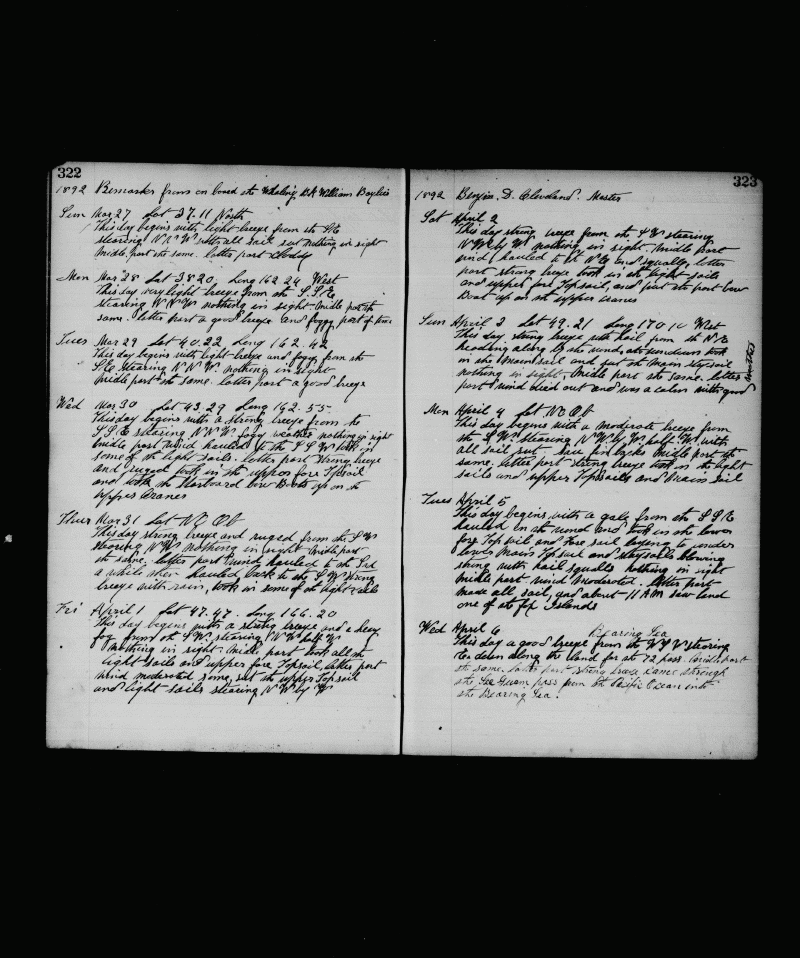 322
1892 Remarks from on board the Whaling Bk William Baylies
Sun Mar 27 Lat 37.11 North
This day begins with light breeze from the SE
stearing N N W with all sail set nothing in sight
midle part the same. latter part cloudy
Mon Mar 28 Lat 38 20 Long 162 24 West
This day very light breeze from the S.S.E
stearing N N W nothing in sight. midle part the
same. latter part a good breeze and foggy part of time
Tues Mar 29 Lat 40.22 Long 162.42
This day begins with light breeze and fogy from the
S.E Stearing N N W. nothing in sight
midle part the same. latter part a good breeze
Wed Mar 30 Lat 43.29 Long 162.55.
This day begins with a strong breeze from the
S.S.E stearing N N W. fogy weather nothing in sight
midle part wind hauled to the S S W took in
some of the light sails. latter part strong breeze
and ruged took in the upper fore Topsail
and took the Starboard Bow Boat up on the
upper Cranes
Thur Mar 31 Lat No Ob
This day strong breeze and ruged from the S W
stearing N W nothing in sight midle part
the same. latter part wind hauled to the Srd
a while then hauled back to the S W strong
breeze with rain, took in some of the light sails
Fri April 1 Lat 47.47. Long 166.20
This day begins with a strong breeze and a heavy
fog from the S W. stearing N W half W
nothing in sight. midle part took all the
light sails and upper fore Topsail, latter part
wind moderated some, set the upper Topsail
and light sails stearing N W by W
323
1892 Benjin. D. Cleveland. Master
Sat April 2
This day strong breeze from the S W stearing
N W by W. nothing in sight. midle part
wind hauled to the N E and squally, latter
part strong breeze took in the light sails
and upper fore Topsail, and put the port bow
Boat up on the upper cranes
Sun April 3 Lat 49.21 Long 170 10 West
This day, strong breeze with hail from the N E
heading along by the wind, took
in the mainsail and set the main staysail
nothing in sight midle part the same. latter
part wind died out and was a calm with good
weather
Mon April 4 Lat No Ob
This day begins with a moderate breeze from
the S W. Stearing N W by W. half W. with
all sail set midle part the
same. latter part strong breeze took in the light
sails and upper Topsails and main sail
Tues April 5
This day begins with a gale from the S S E
hauled on the wind and took in the lower
fore Topsail and Fore sail laying to under
lower main Topsail and staysails blowing
strong with hail squalls nothing in sight
midle part wind moderated. latter part
made all sail, and about 11 AM saw land
one of the fox Islands
Wed April 6 Bearing Sea
This day a good breeze from the stearing
down along the land for the 72 pass. midle part
the same. latter part strong breeze came through
the pass from the Pacific Ocean into
the Bearing Sea.